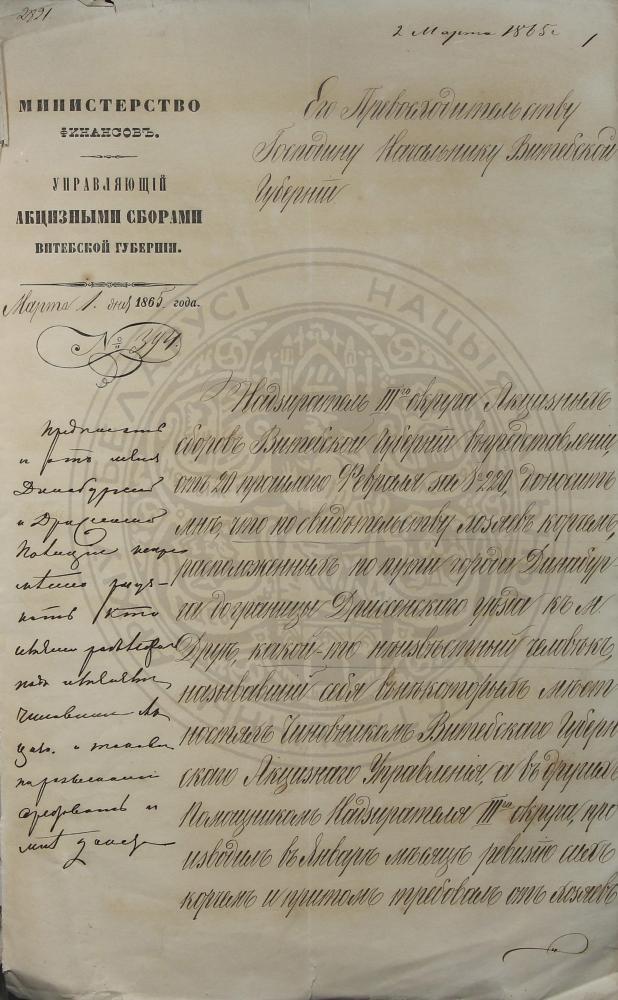 2891
2 Марта 1865 г
1
МИНИСТЕРСТВО
ФИНАНСОВЪ.
УПРАВЛЯЮЩІЙ
АКЦИЗНЫМИ СБОРАМИ
ВИТЕБСКОЙ ГУБЕРНІИ.
Марта 1. дня 1865 года.
№ 394.
Его Превосходительству
Господину Начальнику Витебской
Губерніи
Надзиратель III го округа Акцизныхъ
сборовъ Витебской Губерніи въ представленіи,
отъ 20 прошлаго Февраля за № 220, доноситъ
мнѣ, что по свидѣтельству хозяевъ корчемъ,
расположенныхъ по пути города Динабур-
га до границы Дриссенского уѣзда къ м
Друѣ, какой-то неизвѣстный человѣкъ,
называвшій себя въ нѣкоторыхъ мѣст
ностяхъ Чиновникомъ Витебскаго Губерн
скаго Акцизнаго Управленія, а въ другихъ
Помощникомъ Надзирателя III го округа, про
изводилъ въ Январѣ мѣсяцѣ ревизію сихъ
корчемъ и притомъ требовалъ отъ хозяевъ
Предписать
и отъ меня
Динабургской
и Дриссенской
Полиціи непре
кто
и
БЕЛАРУСІ НАЦЫЯ